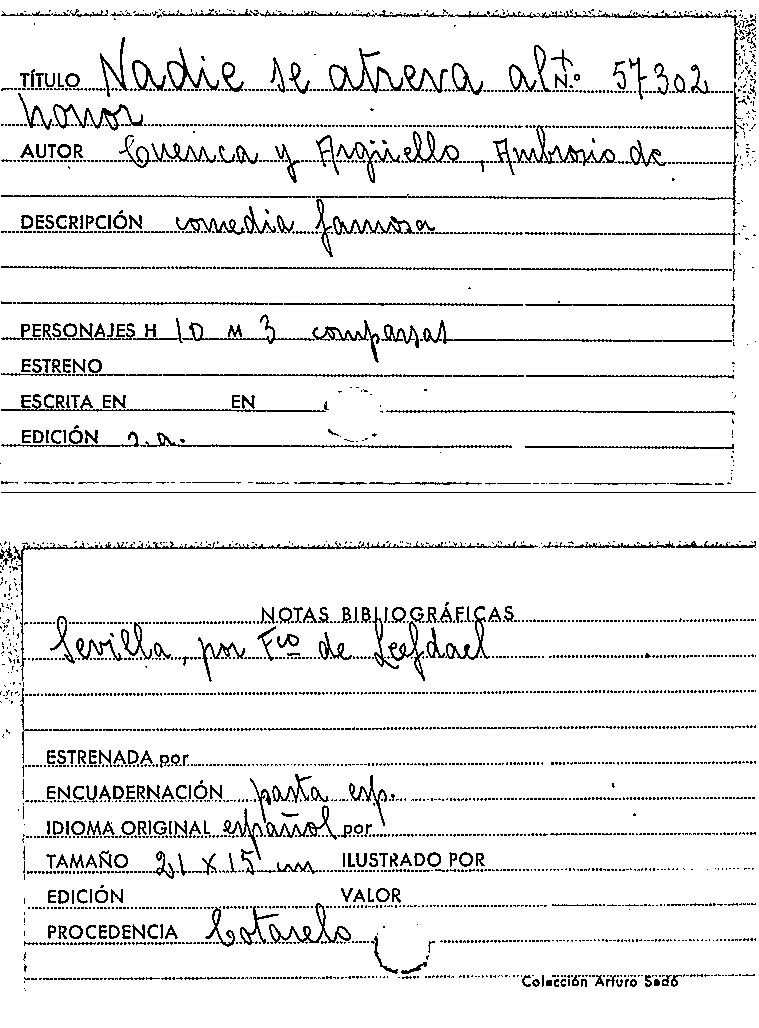 TÍTULO Nadie se atreva al N.º 57302
honor
AUTOR Cuenca y Argüello, Ambrosio de
DESCRIPCIÓN comedia famosa
PERSONAJES H 10 M 3 comparsas
ESTRENO
ESCRITA EN EN
EDICIÓN s.a.
NOTAS BIBLIOGRÁFICAS
Sevilla, por Fco de Leefdael
ESTRENADA por
ENCUADERNACIÓN pasta esp.
IDIOMA ORIGINAL español por
TAMAÑO 21 X 15 cm ILUSTRADO POR
EDICIÓN VALOR
PROCEDENCIA Cotarelo
Colección Arturo Sedó